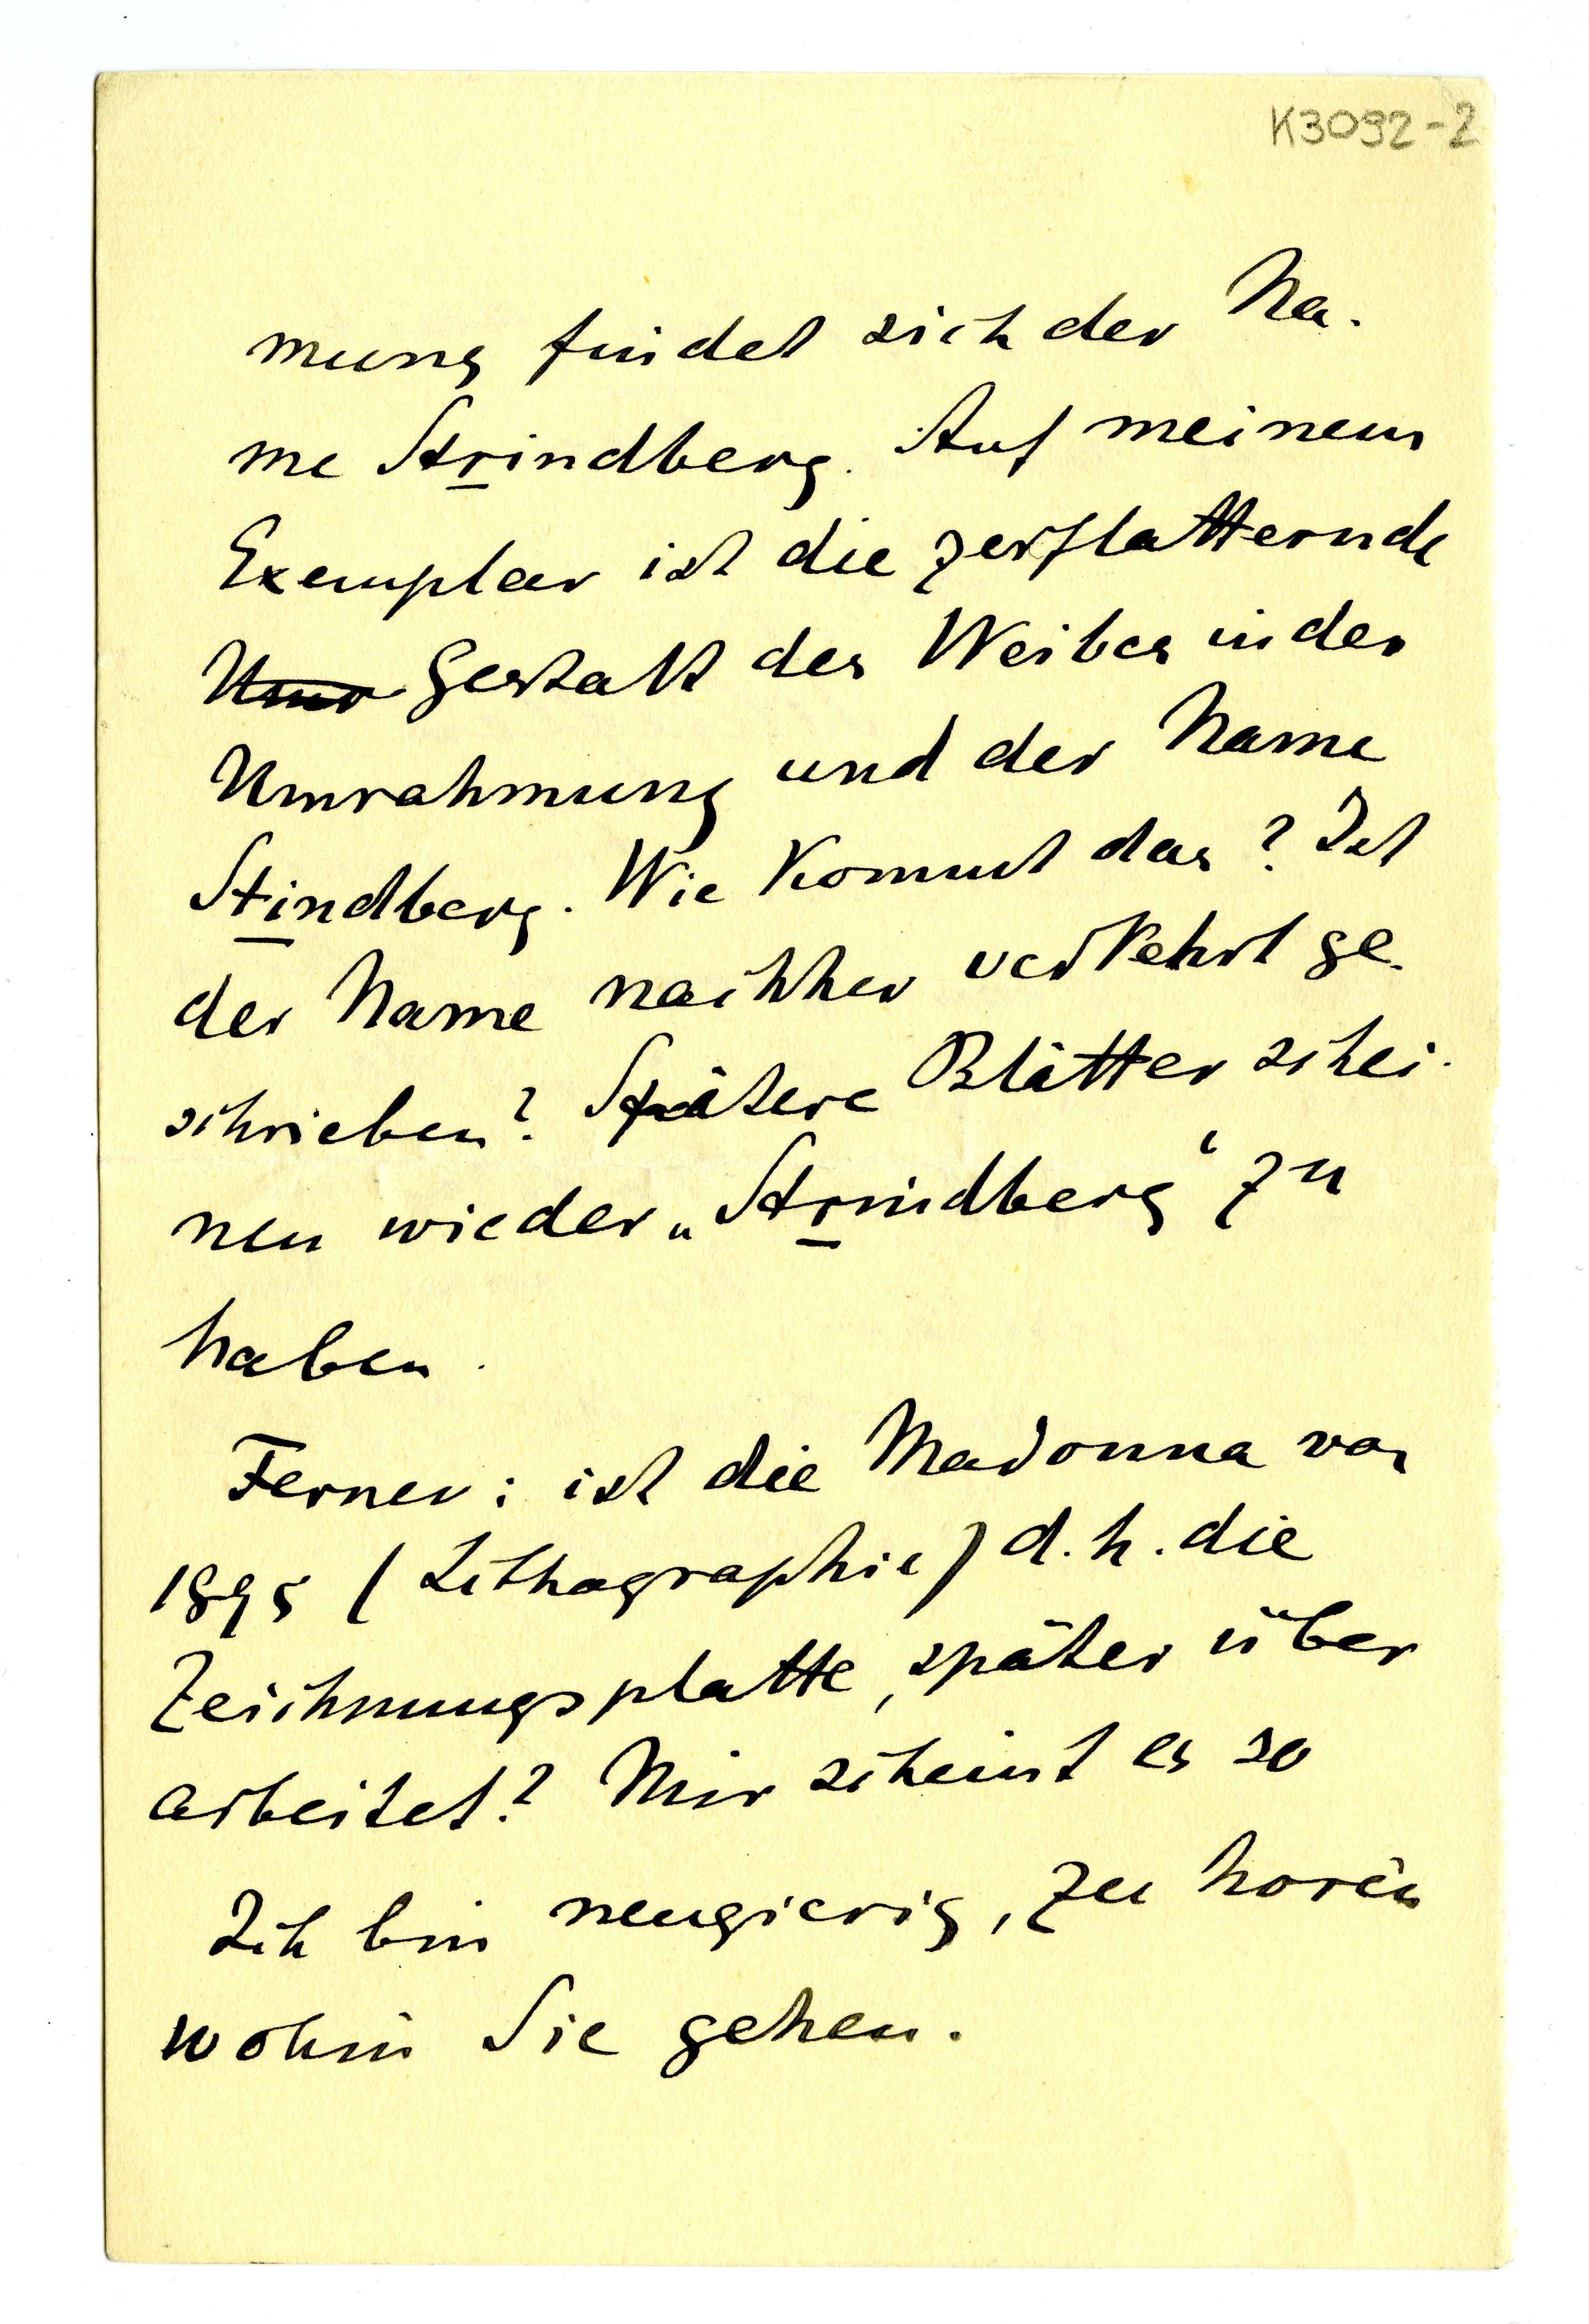 K3092-2
mung findet sich der Na-
me Strindberg. Auf meinem
Exemplar ist die zerflatternde
Gestalt des Weibes in der
Umrahmung und der Name
Stindberg. Wie kommt das? Ist
der Name nachher verkehrt ge-
schrieben? Spätere Blätter schei-
nen wieder „Strindberg“ zu
haben.
Ferner: ist die Madonna von
1895 (Lithographie) d.h. die
Zeichnungsplatte, später über
arbeitet? Mir scheint es so
Ich bin neugierig, zu hören
wohin Sie gehen.